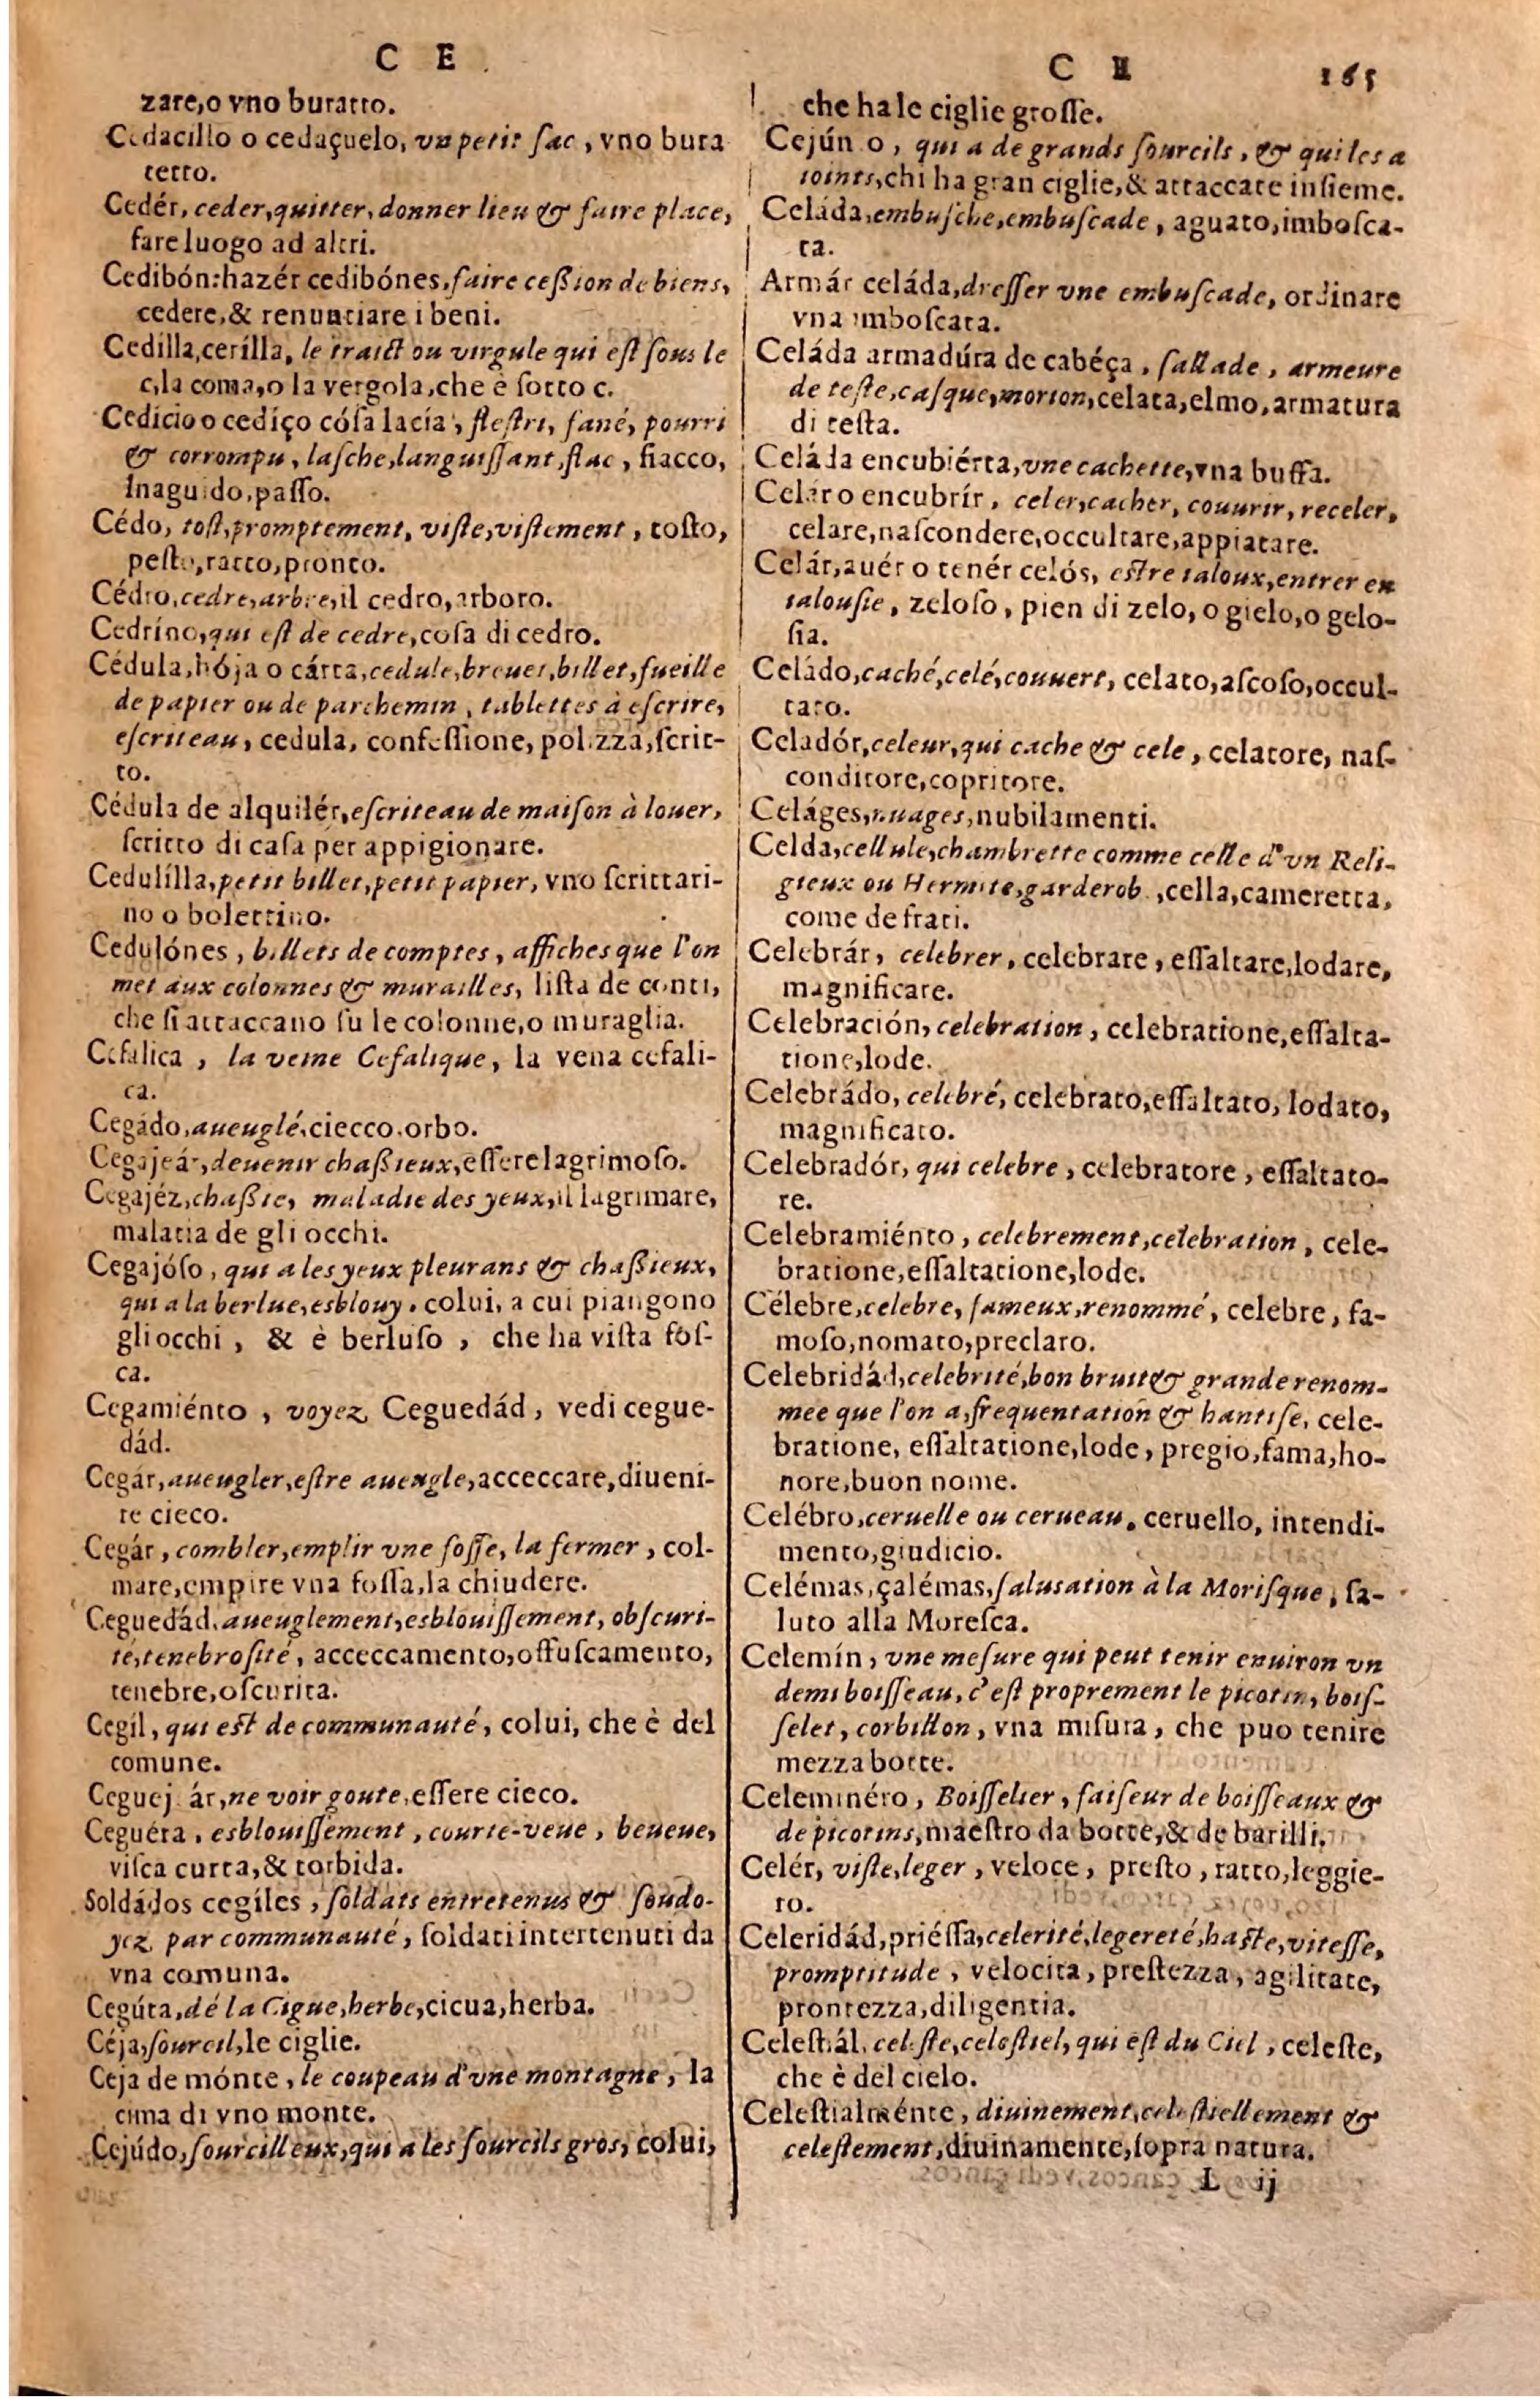 C E
zare,o vno buratto.
Cedacillo o cedaçuelo, vn petit ſac, vno bura
tetto.
Cedér, ceder,quitter,donner lieu & faire place,
fare luogo ad altri.
Cedibón:hazér cedibónes,faire ceßion de biens,
cedere,& renuntiare i beni.
Cedilla,cerílla, le traict ou virgule qui eſt ſous le
c,la coma,o la vergola,che è ſotto c.
Cedicio o cediço cóſa lacía, fleſtri, fané, pourri
& corrompu, laſche,languiſſant,flac, fiacco,
lnaguido,paſſo.
Cédo, toſt,promptement, viſte,viſtement, toſto,
peſto,ratto,pronto.
Cédro,cedre,arbre,il cedro,arboro.
Cedríno,qui eſt de cedre,coſa di cedro.
Cédula,hója o cárta,cedule,breuet,billet,fueille
de papier ou de parchemin, tablettes à eſcrire,
eſcriteau, cedula, confeſſione, polizza,ſcrit-
to.
Cédula de alquilér,eſcriteau de maiſon à louer,
ſcritto di caſa per appigionare.
Cedulílla,petit billet,petit papier, vno ſcrittari-
no o bolettino.
Cedulónes, billets de comptes, affiches que l'on
met aux colonnes & murailles, liſta de conti,
che ſi attaccano ſu le colonne,o muraglia.
Cefalica, la veine Cefalique, la vena cefali-
ca.
Cegádo,aueuglé,ciecco,orbo.
Cegajeár,deuenir chaßieux,eſſere lagrimoſo.
Cegajéz,chaßie, maladie des yeux,il lagrimare,
malatia de gli occhi.
Cegajóſo, qui a les yeux pleurans & chaßieux,
qui a la berlue,esblouy. colui, a cui piangono
gli occhi, & è berluſo, che ha viſta foſ-
ca.
Cegamiénto, voyez Ceguedád, vedi cegue-
dád.
Cegár,aueugler,eſtre aueugle,acceccare,diueni-
re cieco.
Cegár, combler,emplir vne foſſe, la fermer, col-
mare,empire vna foſſa,la chiudere.
Ceguedád,aueuglement,esblouiſſement, obſcuri-
té,tenebroſité, acceccamento,offuſcamento,
tenebre,oſcurita.
Cegíl, qui eſt de communauté, colui, che è del
comune.
Ceguejár,ne voir goute,eſſere cieco.
Ceguéra, esblouiſſement, courte-veue, beueue,
viſca curta,& torbida.
Soldádos cegíles, ſoldats entretenus & ſoudo-
yez par communauté, ſoldati intertenuti da
vna comuna.
Cegúta,dé la Cigue,herbe,cicua,herba.
Céja,ſourcil,le ciglie.
Ceja de mónte, le coupeau d'vne montagne, la
cima di vno monte.
Cejúdo,ſourcilleux,qui a les ſourcils gros, colui,
C E 165
che ha le ciglie groſſe.
Cejúnto, qui a de grands ſourcils, & qui les a
ioints,chi ha gran ciglie,& attaccate inſieme.
Celáda,embuſche,embuſcade, aguato,imboſca-
ta.
Armár celáda,dreſſer vne embuſcade, ordinare
vna imboſcata.
Celáda armadúra de cabéça, ſallade, armeure
de teſte,caſque,morion,celata,elmo,armatura
di teſta.
Celáda encubiérta,vne cachette,vna buffa.
Celár o encubrír, celer,cacher, couurir, receler,
celare,naſcondere,occultare,appiatare.
Celár,auér o tenér celós, eſtre ialoux,entrer en
ialouſie, zeloſo, pien di zelo, o gielo,o gelo-
ſia.
Celádo,caché,celé,couuert, celato,aſcoſo,occul-
tato.
Celadór,celeur,qui cache & cele, celatore, naſ-
conditore,copritore.
Celáges,nuages,nubilamenti.
Celda,cellule,chambrette comme celle d'vn Reli-
gieux ou Hermite,garderob ,cella,cameretta,
come de frati.
Celebrár, celebrer, celebrare, eſſaltare,lodare,
magnificare.
Celebración, celebration, celebratione,eſſalta-
tione,lode.
Celebrádo, celebré, celebrato,eſſaltato, lodato,
magnificato.
Celebradór, qui celebre, celebratore, eſſaltato-
re.
Celebramiénto, celebrement,celebration, cele-
bratione,eſſaltatione,lode.
Célebre,celebre, fameux,renommé, celebre, fa-
moſo,nomato,preclaro.
Celebridád,celebrité,bon bruit & grande renom-
mee que l'on a,frequentation & hantiſe, cele-
bratione, eſſaltatione,lode, pregio,fama,ho-
nore,buon nome.
Celébro,ceruelle ou cerueau. ceruello, intendi-
mento,giudicio.
Celémas,çalémas,ſalusation à la Moriſque, ſa-
luto alla Moreſca.
Celemín, vne meſure qui peut tenir enuiron vn
demi boiſſeau, c'eſt proprement le picotin, boiſ-
ſelet, corbillon, vna miſura, che puo tenire
mezza botte.
Celeminéro, Boiſſelier, faiſeur de boiſſeaux &
de picotins,maeſtro da botte,& de barilli.
Celér, viſte,leger, veloce, preſto, ratto,leggie-
ro.
Celeridád,priéſſa,celerité,legereté,haſte,viteſſe,
promptitude, velocita, preſtezza, agilitate,
prontezza,diligentia.
Celeſtiál, celeſte,celeſtiel, qui eſt du Ciel, celeſte,
che è del cielo.
Celeſtialménte, diuinement,celeſtiellement &
celeſtement,diuinamente,ſopra natura.
L ij